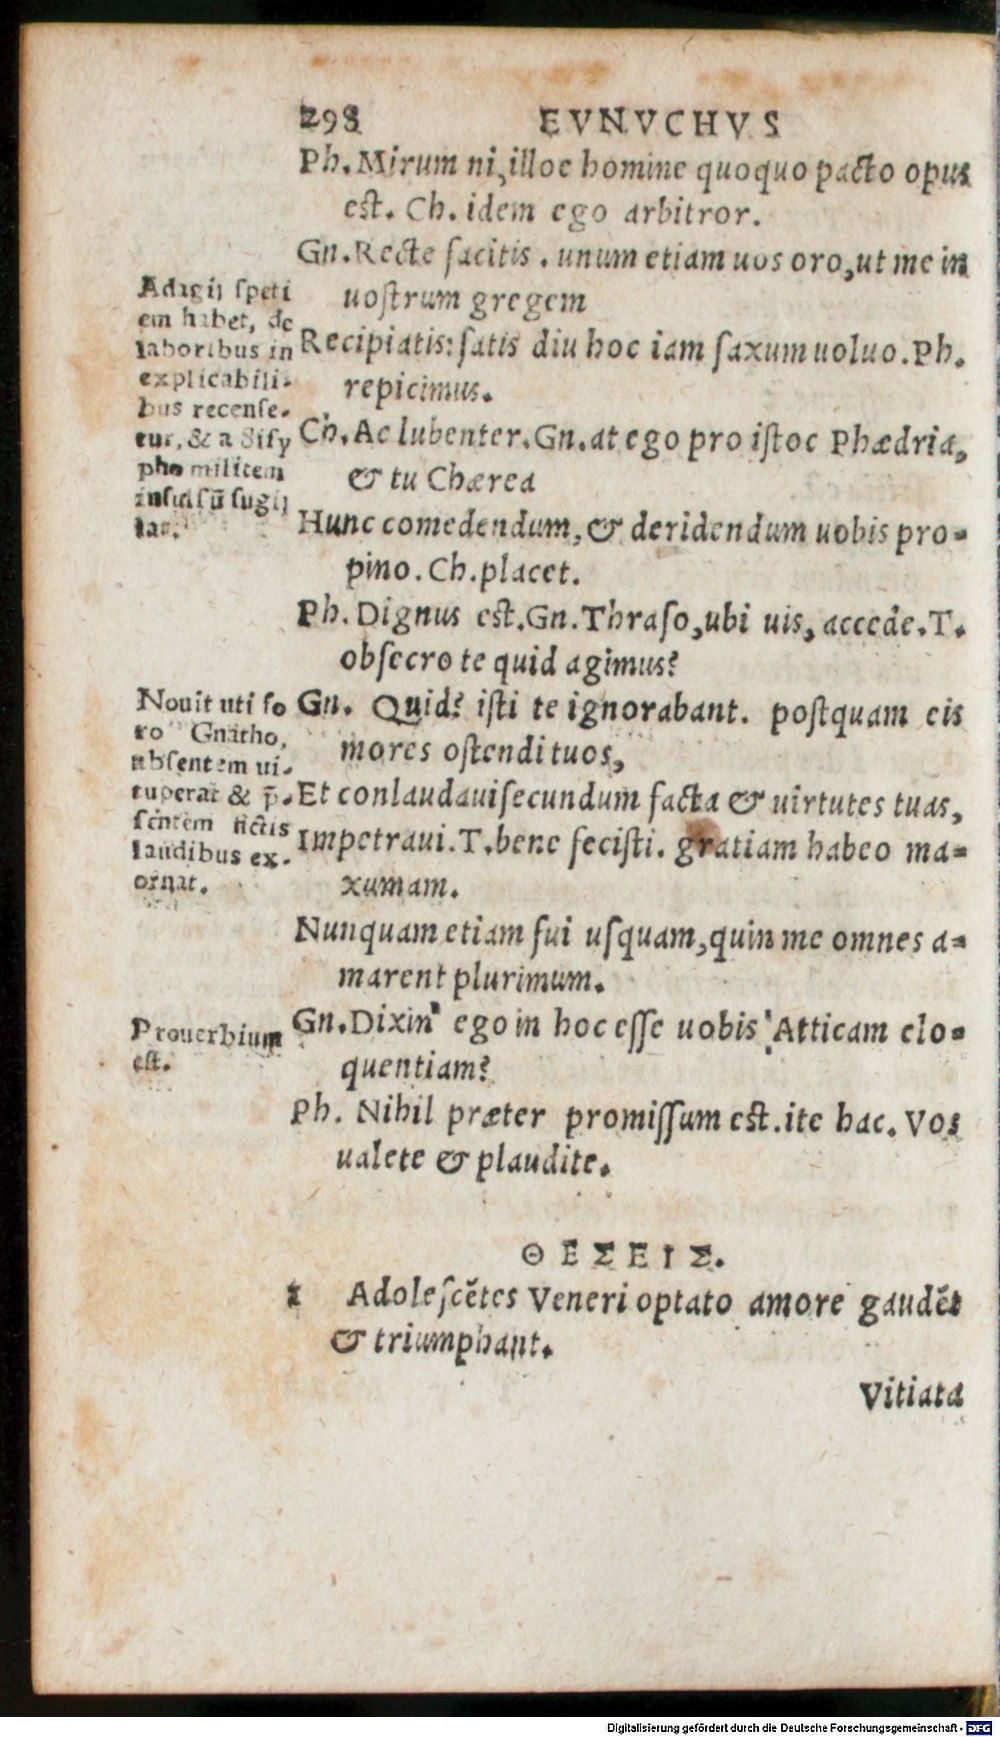 298 EVNVCHVS
Ph. Mirum ni, illoc homine quoquo pacto opus
est. Ch. idem ego arbitror.
Gn. Recte facitis. unum etiam uos oro, ut me in
uoſtrum gregem
Recipiatis: ſatis diu hoc iam ſaxum uoluo. Ph.
repicimus.
Ch. Ac lubenter. Gn. at ego pro iſtoc Phædria,
& tu Chærea
Hunc comedendum, & deridendum uobis pro-
pino. Ch. placet.
Ph. Dignus eſt. Gn. Thraſo, ubi uis, accede. T.
obſecro te quid agimus?
Gn. Quid? iſti te ignorabant. poſtquam eis
mores oſtendi tuos,
Et conlaudaui ſecundum facta & uirtutes tuas,
Impetraui. T. bene feciſti. gratiam habeo ma-
xumam.
Nunquam etiam fui uſquam, quin me omnes a-
marent plurimum.
Gn. Dixin' ego in hoc eſſe uobis Atticam elo-
quentiam?
Ph. Nihil præter promiſſum eſt. ite hac. Vos
ualete & plaudite.
Adagij ſpeti
em habet, de
laboribus in
explicabili-
bus recenſe-
tur, & a Siſy
pho militem
inſulſũ ſugij
lat.
Nouit uti fo
ro Gnatho,
abſentem ui-
tuperat & p̃-
ſentem fictis
laudibus ex-
ornat.
Prouerbium
eſt.
ΘΕΣΕΙΣ.
1 Adoleſcẽtes Veneri optato amore gaudẽt
& triumphant.
Vitiata
Digitalisierung gefördert durch die Deutsche Forschungsgemeinschaft - DFG